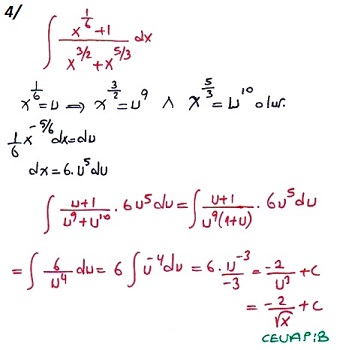 4/
∫ (x^(1/6) + 1)/(x^(3/2) + x^(5/3)) dx
x^(1/6) = u ⟹ x^(3/2) = u^9 ∧ x^(5/3) = u^10 olur.
1/6 x^(-5/6) dx = du
dx = 6.u^5 du
∫ (u+1)/(u^9+u^10) · 6u^5 du = ∫ (u+1)/(u^9(1+u)) · 6u^5 du
= ∫ 6/u^4 du = 6 ∫ u^-4 du = 6 · u^-3/-3 = -2/u^3 + c
= -2/√x + c
CEVAP: B